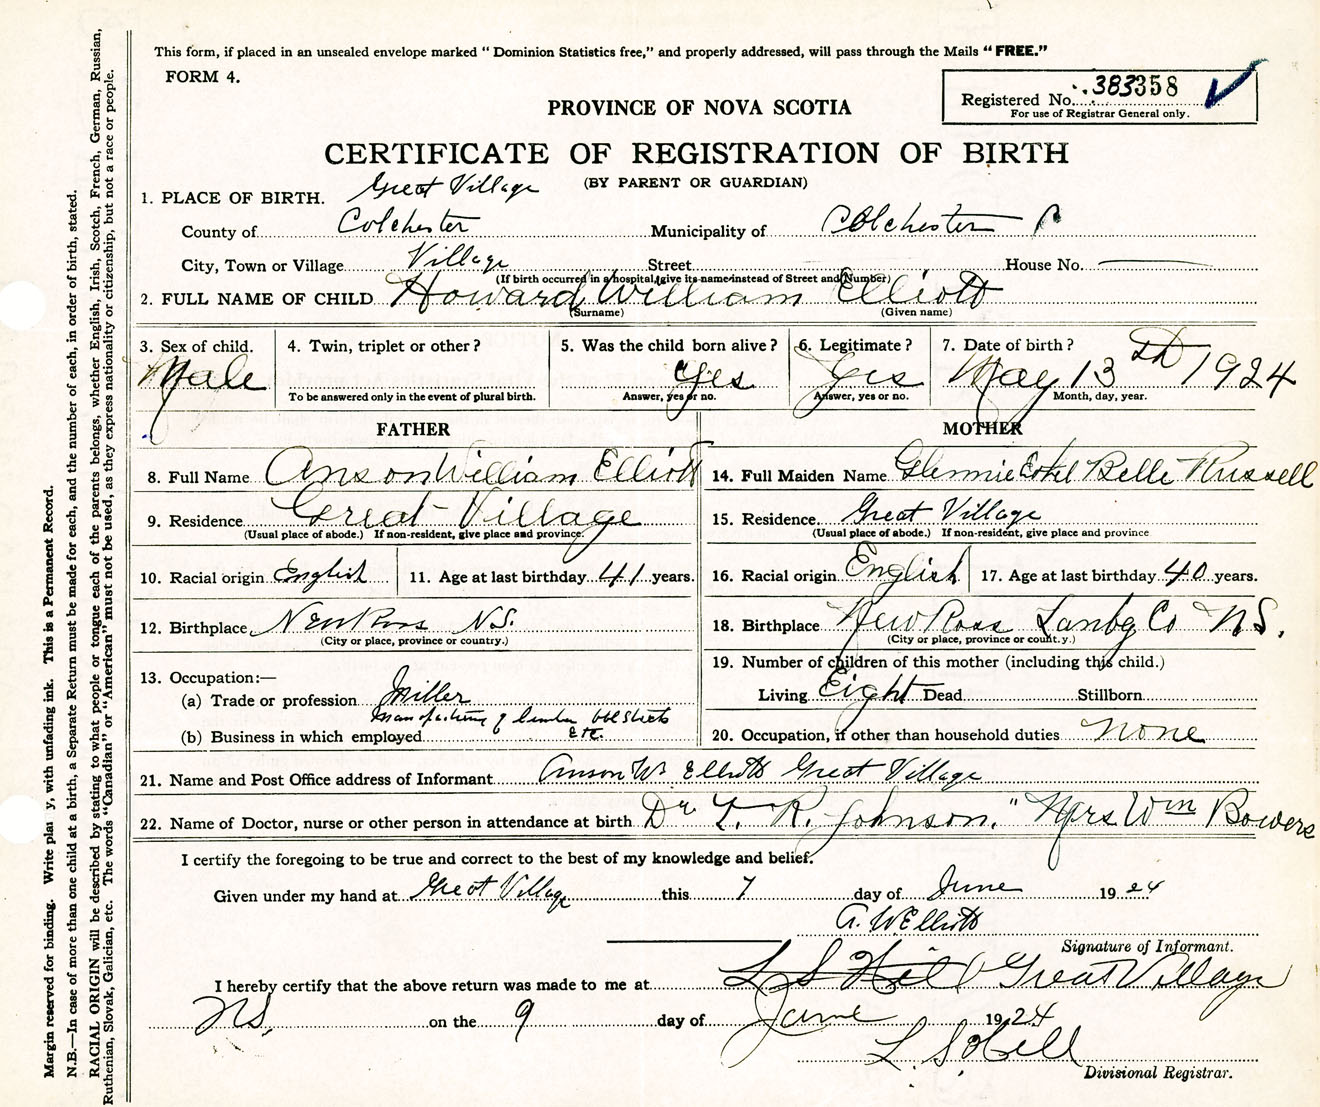 This form, if placed in an unsealed envelope marked "Dominion Statistics free," and properly addressed, will pass through the Mails "FREE."
FORM 4.
Registered No. 383358
For use of Registrar General only.
PROVINCE OF NOVA SCOTIA
CERTIFICATE OF REGISTRATION OF BIRTH
(BY PARENT OR GUARDIAN)
1. PLACE OF BIRTH. Great Village
County of Colchester Municipality of Colchester
City, Town or Village Village Street House No.
(If birth occurred in a hospital, give its name instead of Street and Number)
2. FULL NAME OF CHILD Howard William Elliott
(Surname) (Given name)
3. Sex of child. Male
4. Twin, triplet or other?
To be answered only in the event of plural birth.
5. Was the child born alive? Yes
Answer, yes or no.
6. Legitimate? Yes
Answer, yes or no.
7. Date of birth? May 13th 1924
Month, day, year.
FATHER
8. Full Name Anson William Elliott
9. Residence Great Village
(Usual place of abode.) If non-resident, give place and province.
10. Racial origin English 11. Age at last birthday 41 years.
12. Birthplace New Ross N.S.
(City or place, province or country.)
13. Occupation:—
(a) Trade or profession Miller
(b) Business in which employed Manufacturing of lumber etc.
MOTHER
14. Full Maiden Name Glennie Ethel Belle Russell
15. Residence Great Village
(Usual place of abode.) If non-resident, give place and province
16. Racial origin English 17. Age at last birthday 40 years.
18. Birthplace New Ross Lunbg Co N.S.
(City or place, province or county.)
19. Number of children of this mother (including this child.)
Living Eight Dead Stillborn
20. Occupation, if other than household duties None
21. Name and Post Office address of Informant Anson W Elliott Great Village
22. Name of Doctor, nurse or other person in attendance at birth Dr T. R. Johnson. " Mrs Wm Bowers
I certify the foregoing to be true and correct to the best of my knowledge and belief.
Given under my hand at Great Village this 7 day of June 1924
A. W Elliott
Signature of Informant.
I hereby certify that the above return was made to me at L S Hill Great Village
NS, on the 9 day of June 1924
L. S. Hill
Divisional Registrar.
Margin reserved for binding. Write plainly, with unfading ink. This is a Permanent Record.
N.B.—In case of more than one child at a birth, a Separate Return must be made for each, and the number of each, in order of birth, stated.
RACIAL ORIGIN will be described by stating to what people or tongue each of the parents belongs, whether English, Irish, Scotch, French, German, Russian,
Ruthenian, Slovak, Galician, etc. The words "Canadian" or "American" must not be used, as they express nationality or citizenship, but not a race or people.